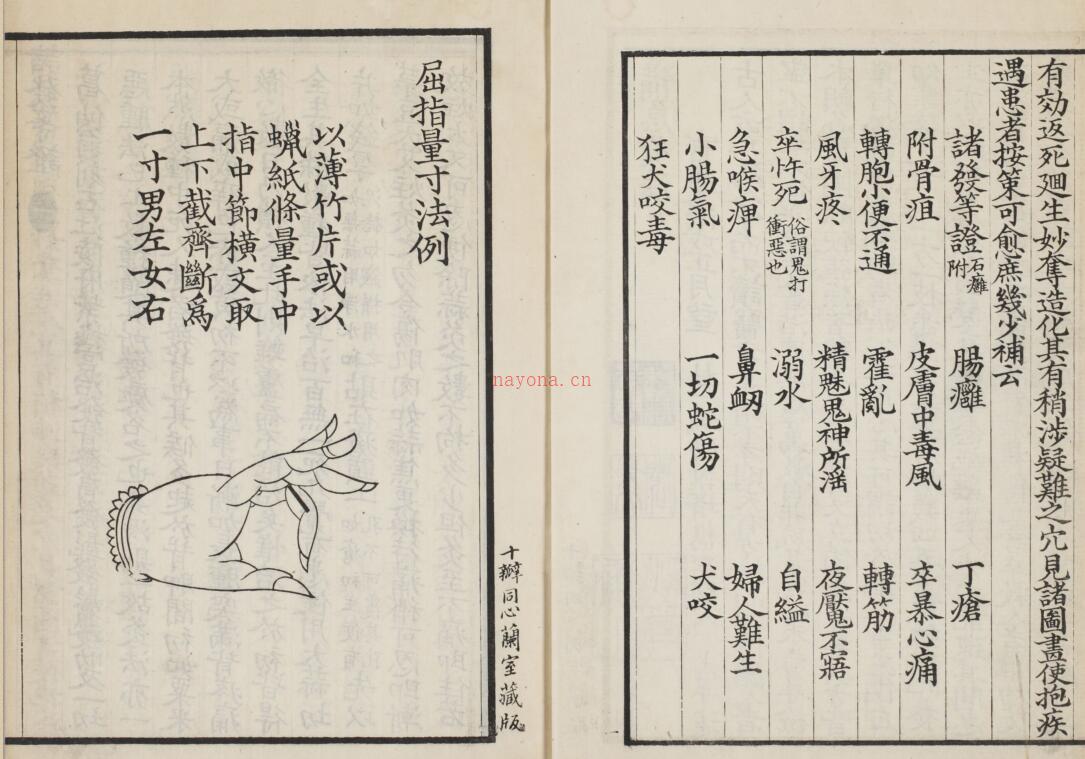 有効返死廻生妙奪造化其有稍涉疑難之穴見諸圖畫使抱疾
遇患者按策可愈庶幾少補云
諸發等證 石癰附 腸癰 丁瘡
附骨疽 皮膚中毒風 卒暴心痛
轉胞小便不通 霍亂 轉筋
風牙疼 精魅鬼神所淫 夜魘不寤
卒忤死 俗謂鬼打衝惡也 溺水 自縊
急喉痺 鼻衂 婦人難生
小腸氣 一切蛇傷 犬咬
狂犬咬毒
十瓣同心蘭室藏版
屈指量寸法例
以薄竹片或以
蠟紙條量手中
指中節橫文取
上下截齊斷爲
一寸男左女右
nayona.cn